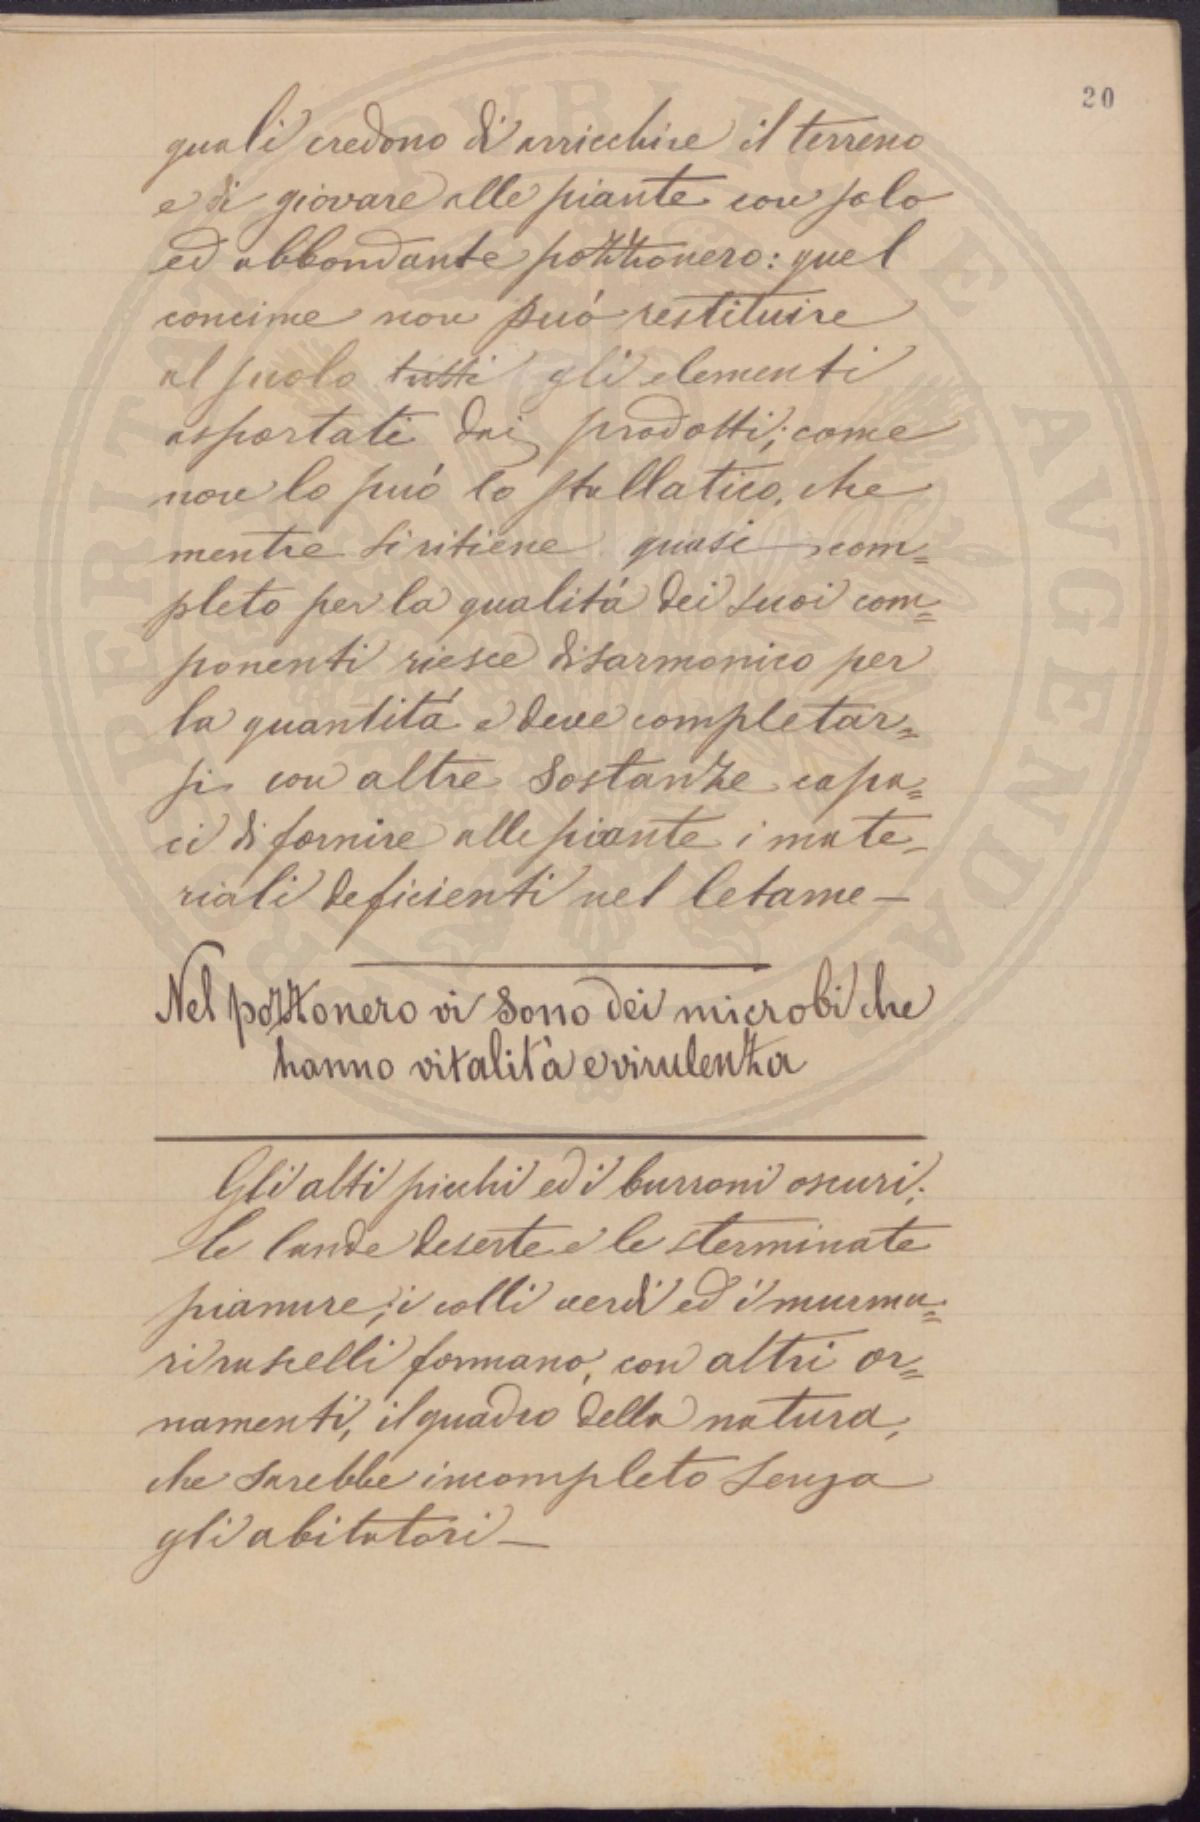 20
quali credono di arricchire il terreno
e di giovare alle piante con solo
ed abbondante pozzonero: quel
concime non può restituire
al suolo tutti gli elementi
asportati dai prodotti; come
non lo può lo stallatico, che
mentre si ritiene quasi com=
pleto per la qualitá dei suoi com=
ponenti riesce disarmonico per
la quantitá e deve completar=
si con altre sostanze capa=
ci di fornire alle piante i mate-
riali deficienti nel letame —
Nel pozzonero vi sono dei microbi che
hanno vitalità e virulenza
Gli alti picchi ed i burroni oscuri;
le lande deserte e le sterminate
pianure; i colli verdi ed i murmu=
ri ruscelli formano, con altri or=
namenti, il quadro della natura,
che sarebbe incompleto senza
gli abitatori —
PUBLICAE AUGENDAE